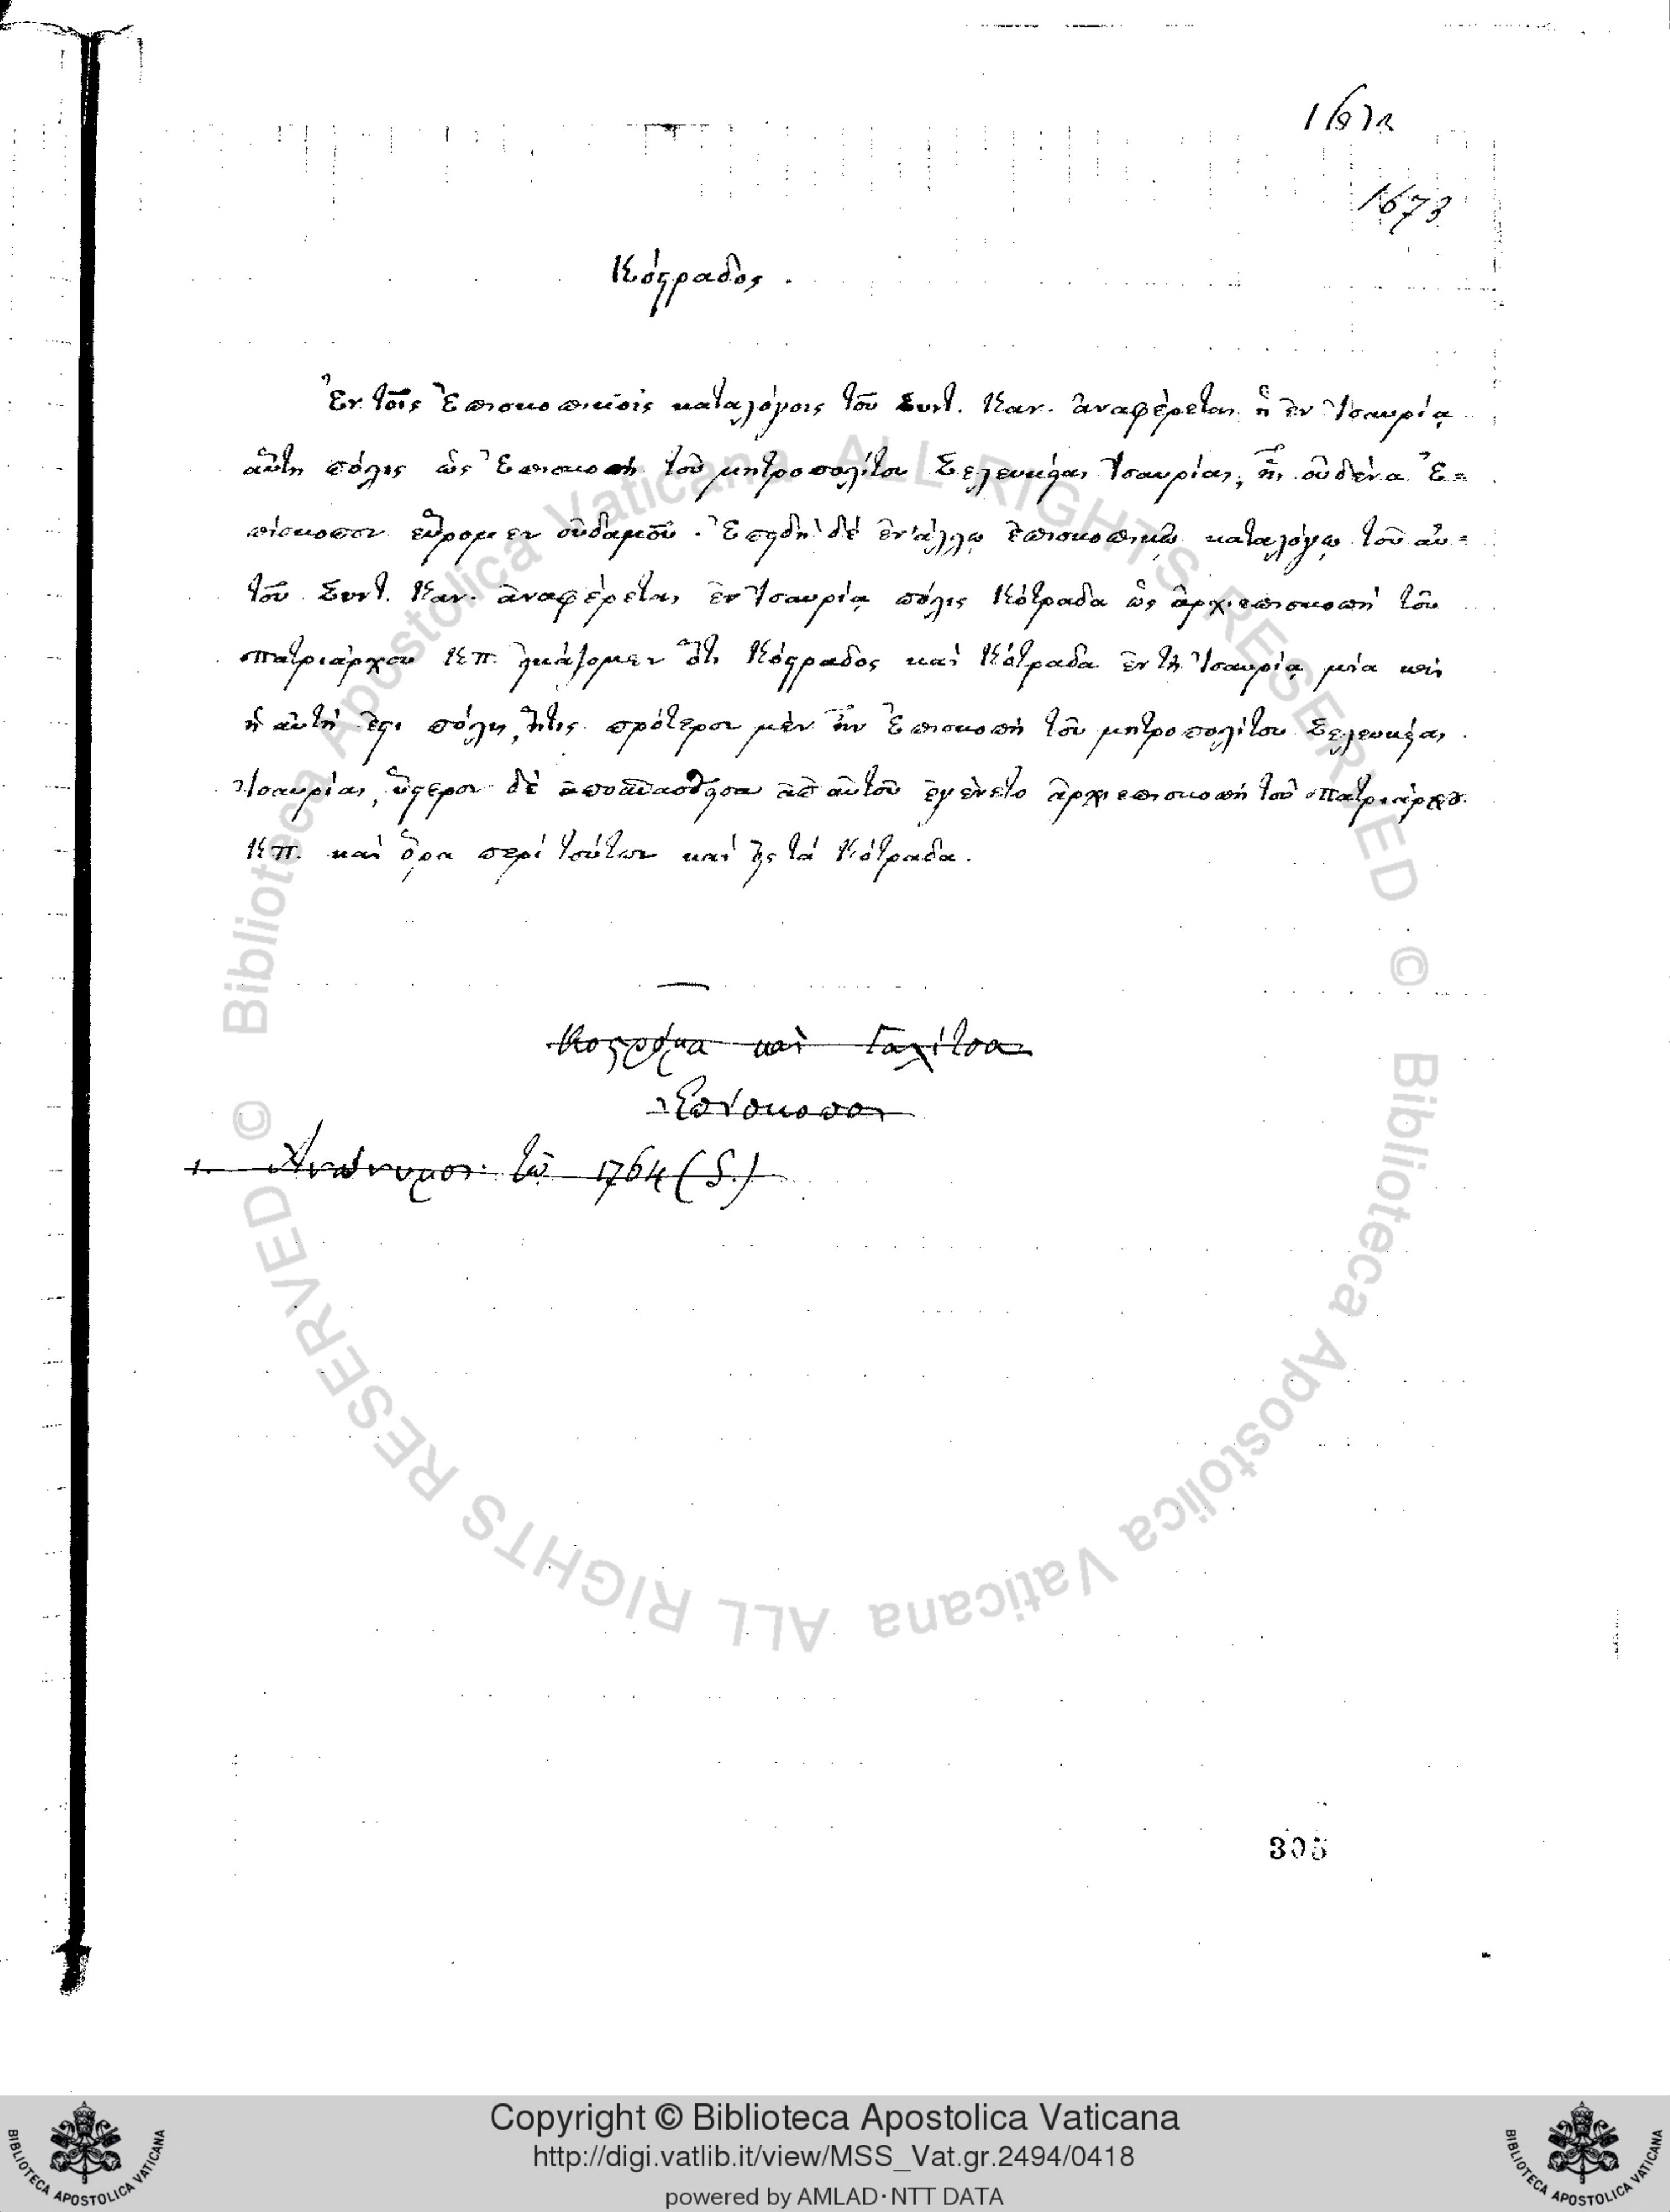 1672
1673
Κόστραδος.
Ἐν τοῖς Ἐπισκοπικοῖς καταλόγοις τοῦ Συντ. Καν. ἀναφέρεται ἡ ἐν Ἰσαυρίᾳ
αὕτη πόλις ὡς Ἐπισκοπὴ τοῦ μητροπολίτου Σελευκείας Ἰσαυρίας, ἧς οὐδένα Ἐ=
πίσκοπον εὕρομεν οὐδαμοῦ. Ἐπειδὴ δὲ ἐν ἄλλῳ ἐπισκοπικῷ καταλόγῳ τοῦ αὐ=
τοῦ Συντ. Καν. ἀναφέρεται ἐν Ἰσαυρίᾳ πόλις Κότραδα ὡς ἀρχιεπισκοπὴ τοῦ
πατριάρχου Κπ. εἰκάζομεν ὅτι Κόστραδος καὶ Κότραδα ἐν τῇ Ἰσαυρίᾳ μία καὶ
ἡ αὐτή ἐστι πόλις, ἥτις πρότερον μὲν ἦν Ἐπισκοπὴ τοῦ μητροπολίτου Σελευκείας
Ἰσαυρίας, ὕστερον δὲ ἀποσπασθεῖσα ἀπ' αὐτοῦ ἐγένετο ἀρχιεπισκοπὴ τοῦ πατριάρχου
Κπ. καὶ ὅρα περὶ τούτων καὶ εἰς τὰ Κότραδα.
καὶ
Ἐπίσκοποι
1. Ἀνώνυμος τῷ 1764 (S.)
305
Copyright © Biblioteca Apostolica Vaticana
http://digi.vatlib.it/view/MSS_Vat.gr.2494/0418
powered by AMLAD·NTT DATA
BIBLIOTECA APOSTOLICA VATICANA
BIBLIOTECA APOSTOLICA VATICANA
© Biblioteca Apostolica Vaticana ALL RIGHTS RESERVED
© Biblioteca Apostolica Vaticana ALL RIGHTS RESERVED